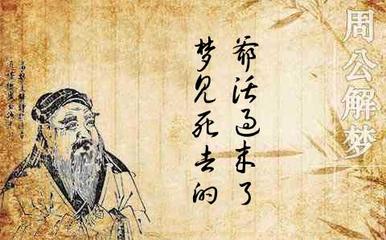 周公解梦
梦见死去的
爷活过来了